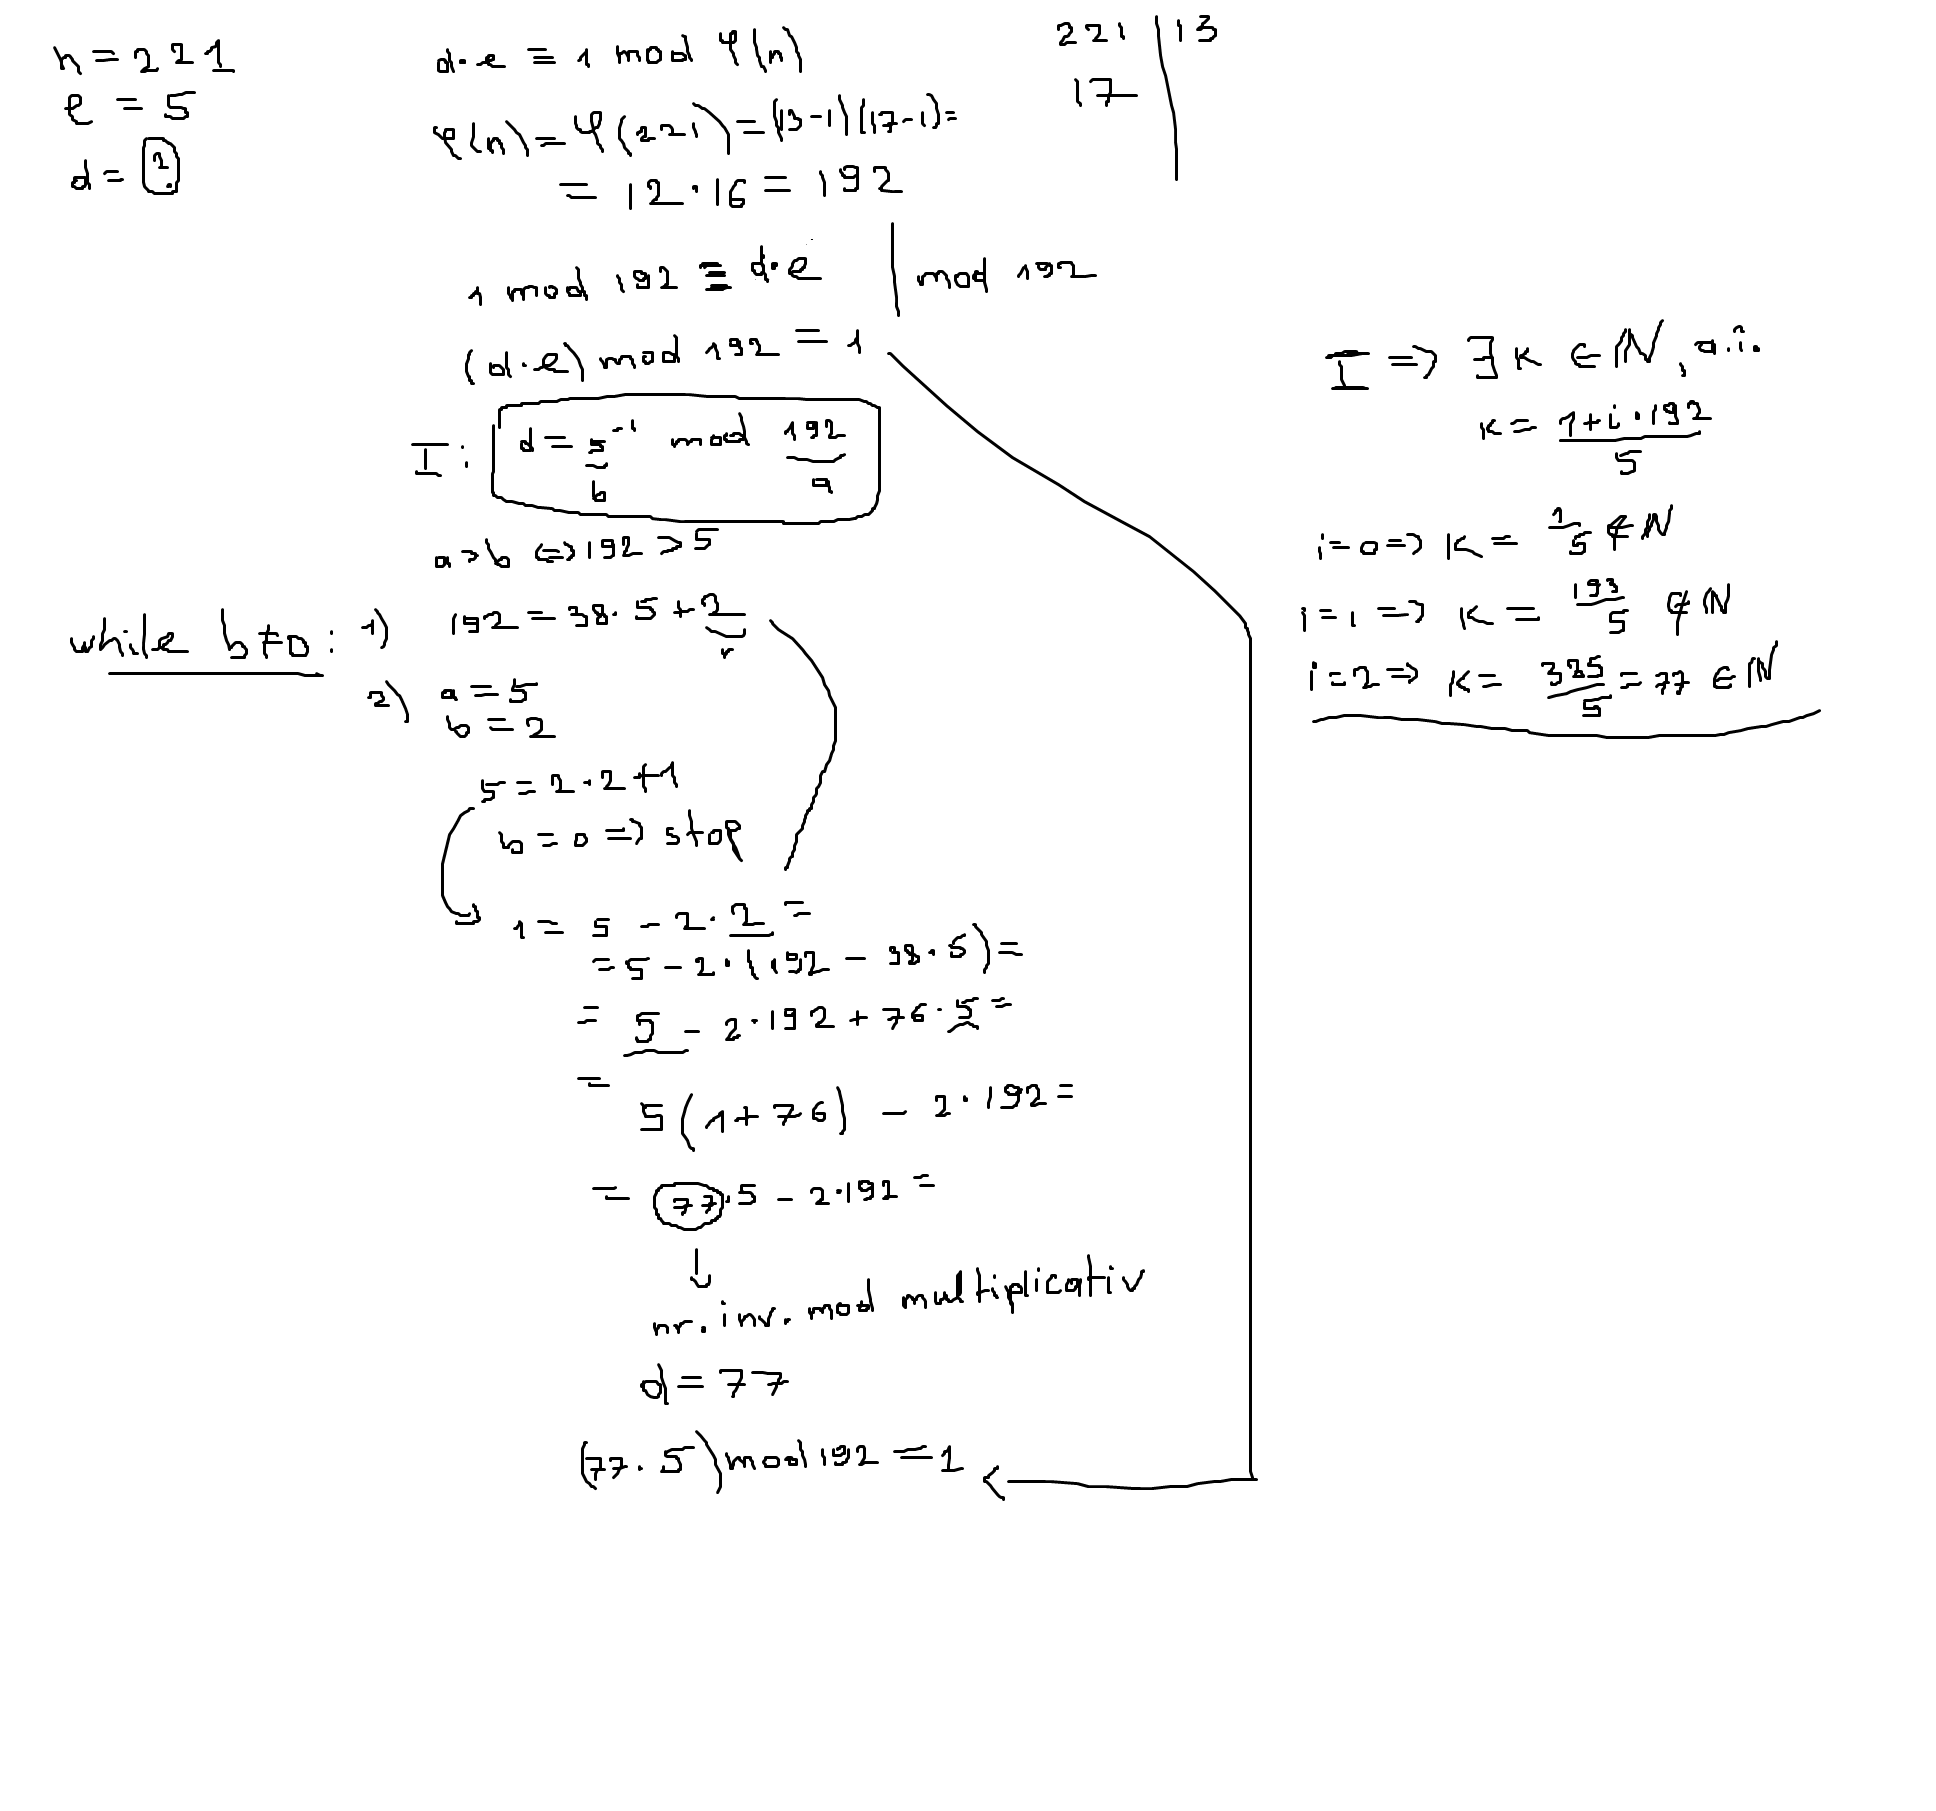 n = 221
e = 5
d = ?
d·e ≡ 1 mod φ(n)
φ(n) = φ(221) = (13-1)(17-1) =
= 12·16 = 192
221 | 13
17 |
1 mod 192 ≡ d·e | mod 192
(d·e) mod 192 = 1
I: d = 5⁻¹ mod 192
b a
a > b ⇔ 192 > 5
while b≠0: 1) 192 = 38·5 + 2
r
2) a = 5
b = 2
5 = 2·2+1
b = 0 => stop
=> 1 = 5 - 2·2 =
= 5 - 2·(192 - 38·5) =
= 5 - 2·192 + 76·5 =
=
5(1+76) - 2·192 =
= 77·5 - 2·192 =
↓
nr. inv. mod multiplicativ
d = 77
(77·5) mod 192 = 1
I => ∃ k ∈ ℕ, a.î.
k = 1+i·192 / 5
i=0 => k = 1/5 ∉ ℕ
i=1 => k = 193/5 ∉ ℕ
i=2 => k = 385/5 = 77 ∈ ℕ